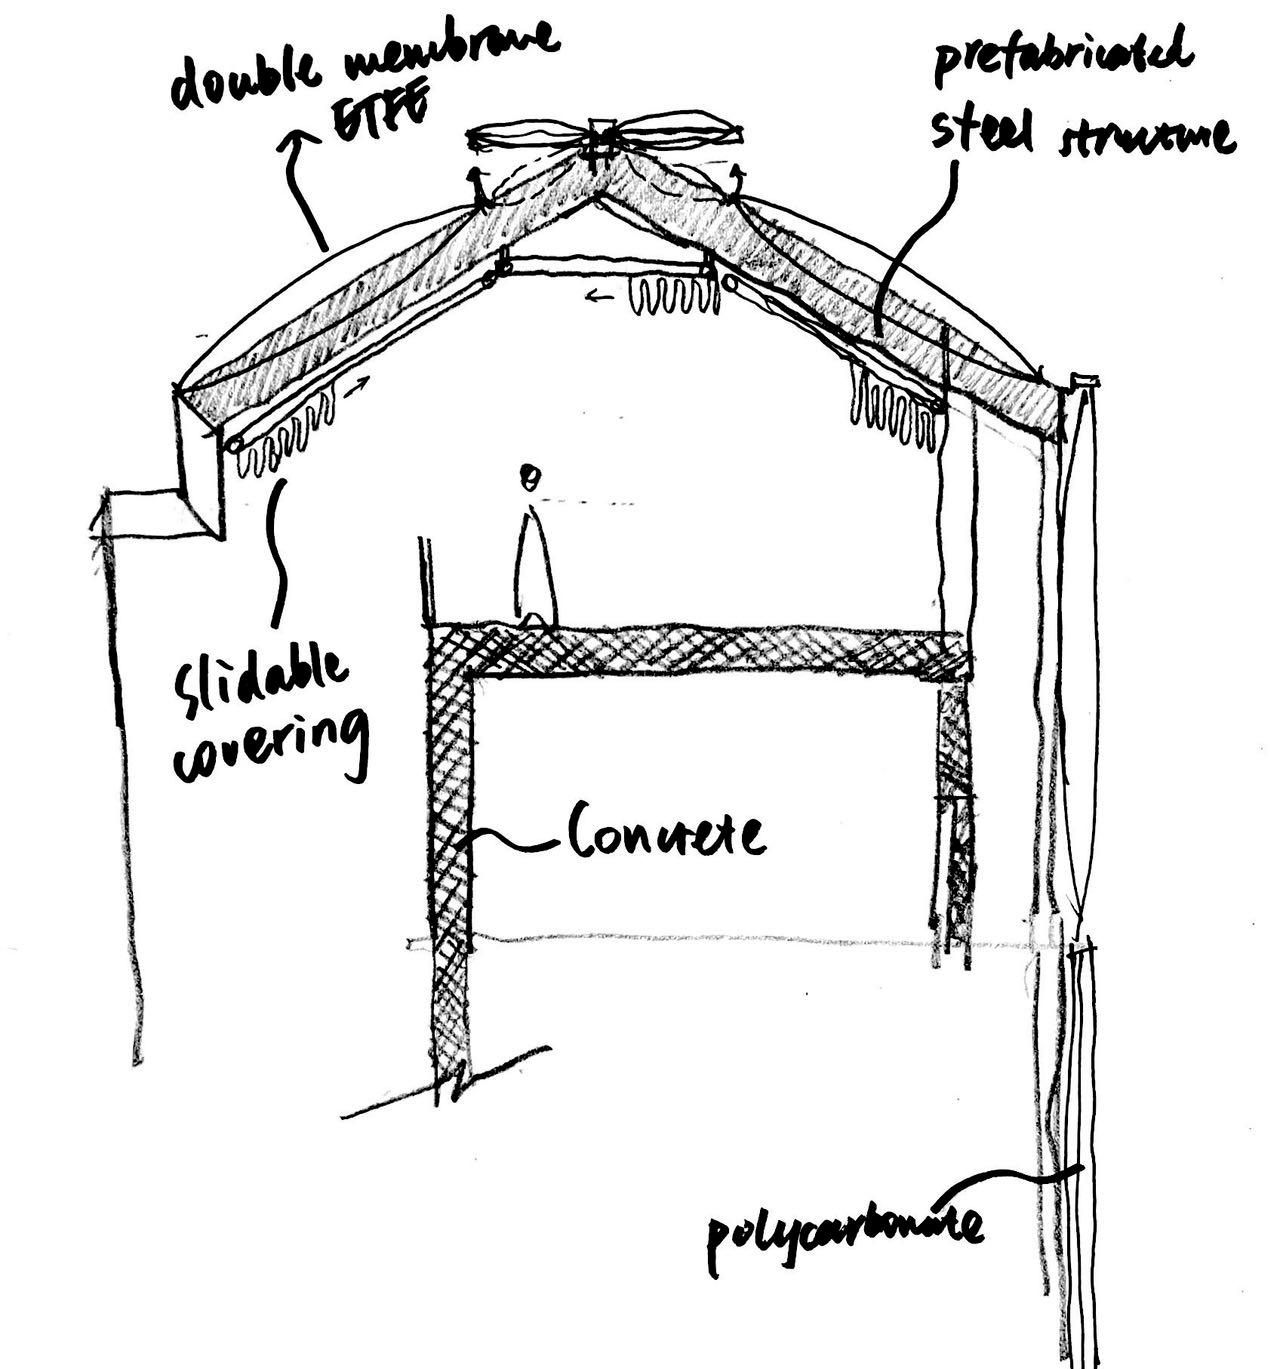 double membrane
ETFE
prefabricated
steel structure
slidable
covering
Concrete
polycarbonate